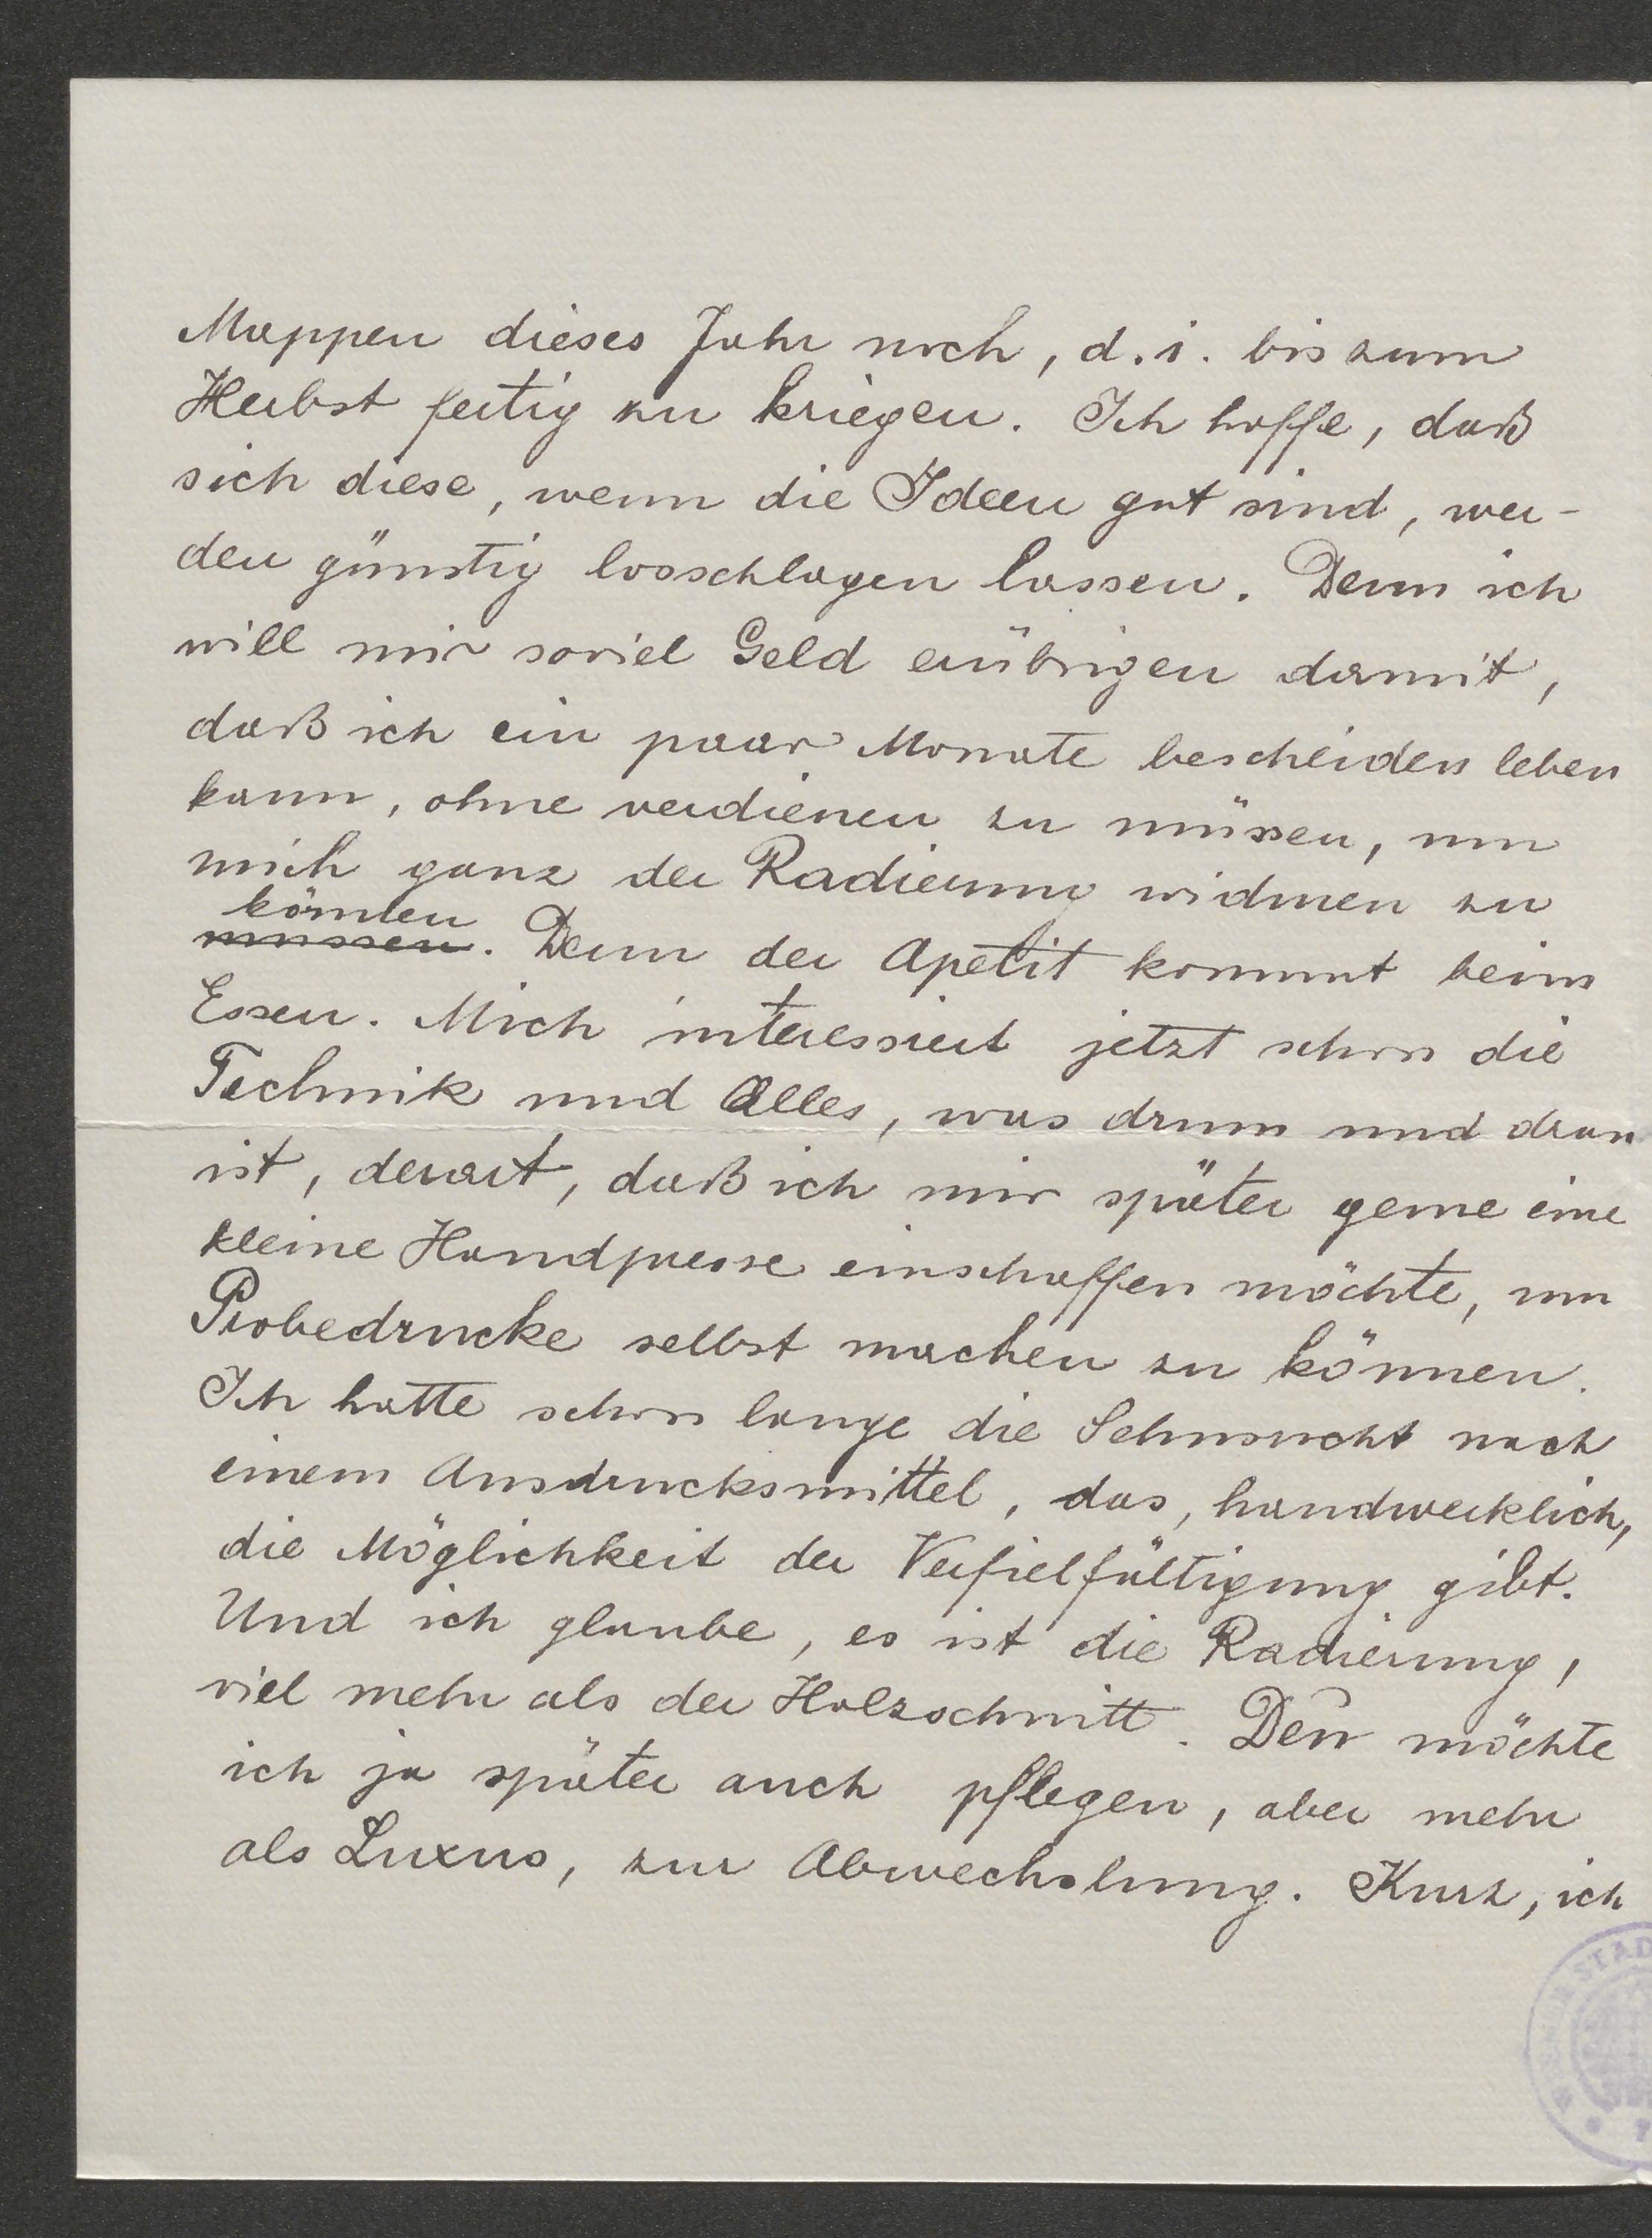 Mappen dieses Jahr noch, d.i. bis zum
Herbst fertig zu kriegen. Ich hoffe, daß
sich diese, wenn die Ideen gut sind, wer-
den günstig losschlagen lassen. Denn ich
will mir soviel Geld erübrigen damit,
daß ich ein paar Monate bescheiden leben
kann, ohne verdienen zu müssen, um
mich ganz der Radierung widmen zu
können
müssen. Denn der Apetit kommt beim
Essen. Mich interessiert jetzt schon die
Technik und Alles, was drum und dran
ist, derart, daß ich mir später gerne eine
kleine Handpresse einschaffen möchte, um
Probedrucke selbst machen zu können.
Ich hatte schon lange die Sehnsucht nach
einem Ausdrucksmittel, das, handwerklich,
die Möglichkeit der Verfielfältigung gibt.
Und ich glaube, es ist die Radierung,
viel mehr als der Holzschnitt. Den möchte
ich ja später auch pflegen, aber mehr
als Luxus, zur Abwechslung. Kurz, ich